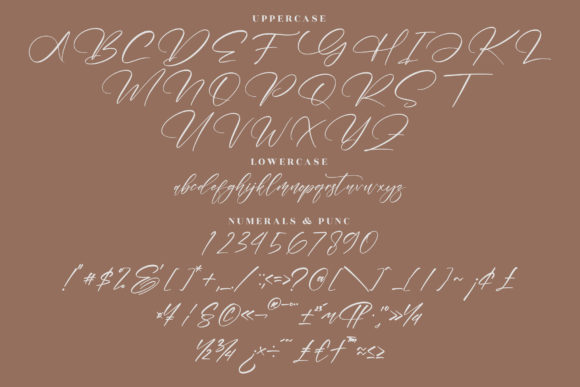 UPPERCASE
A B C D E F G H I J K L
M N O P Q R S T
U V W X Y Z
LOWERCASE
abcdefghijklmnopqrstuvwxyz
NUMERALS & PUNC
1234567890
!"#$%&'()*+,-./:;<=>?@[\]^_{|}~¡¢£
¥¦§©«¬®¯°±²³µ¶·¸¹º»¼
½¾¿×÷ˆ˜₤€†™≈≤≥